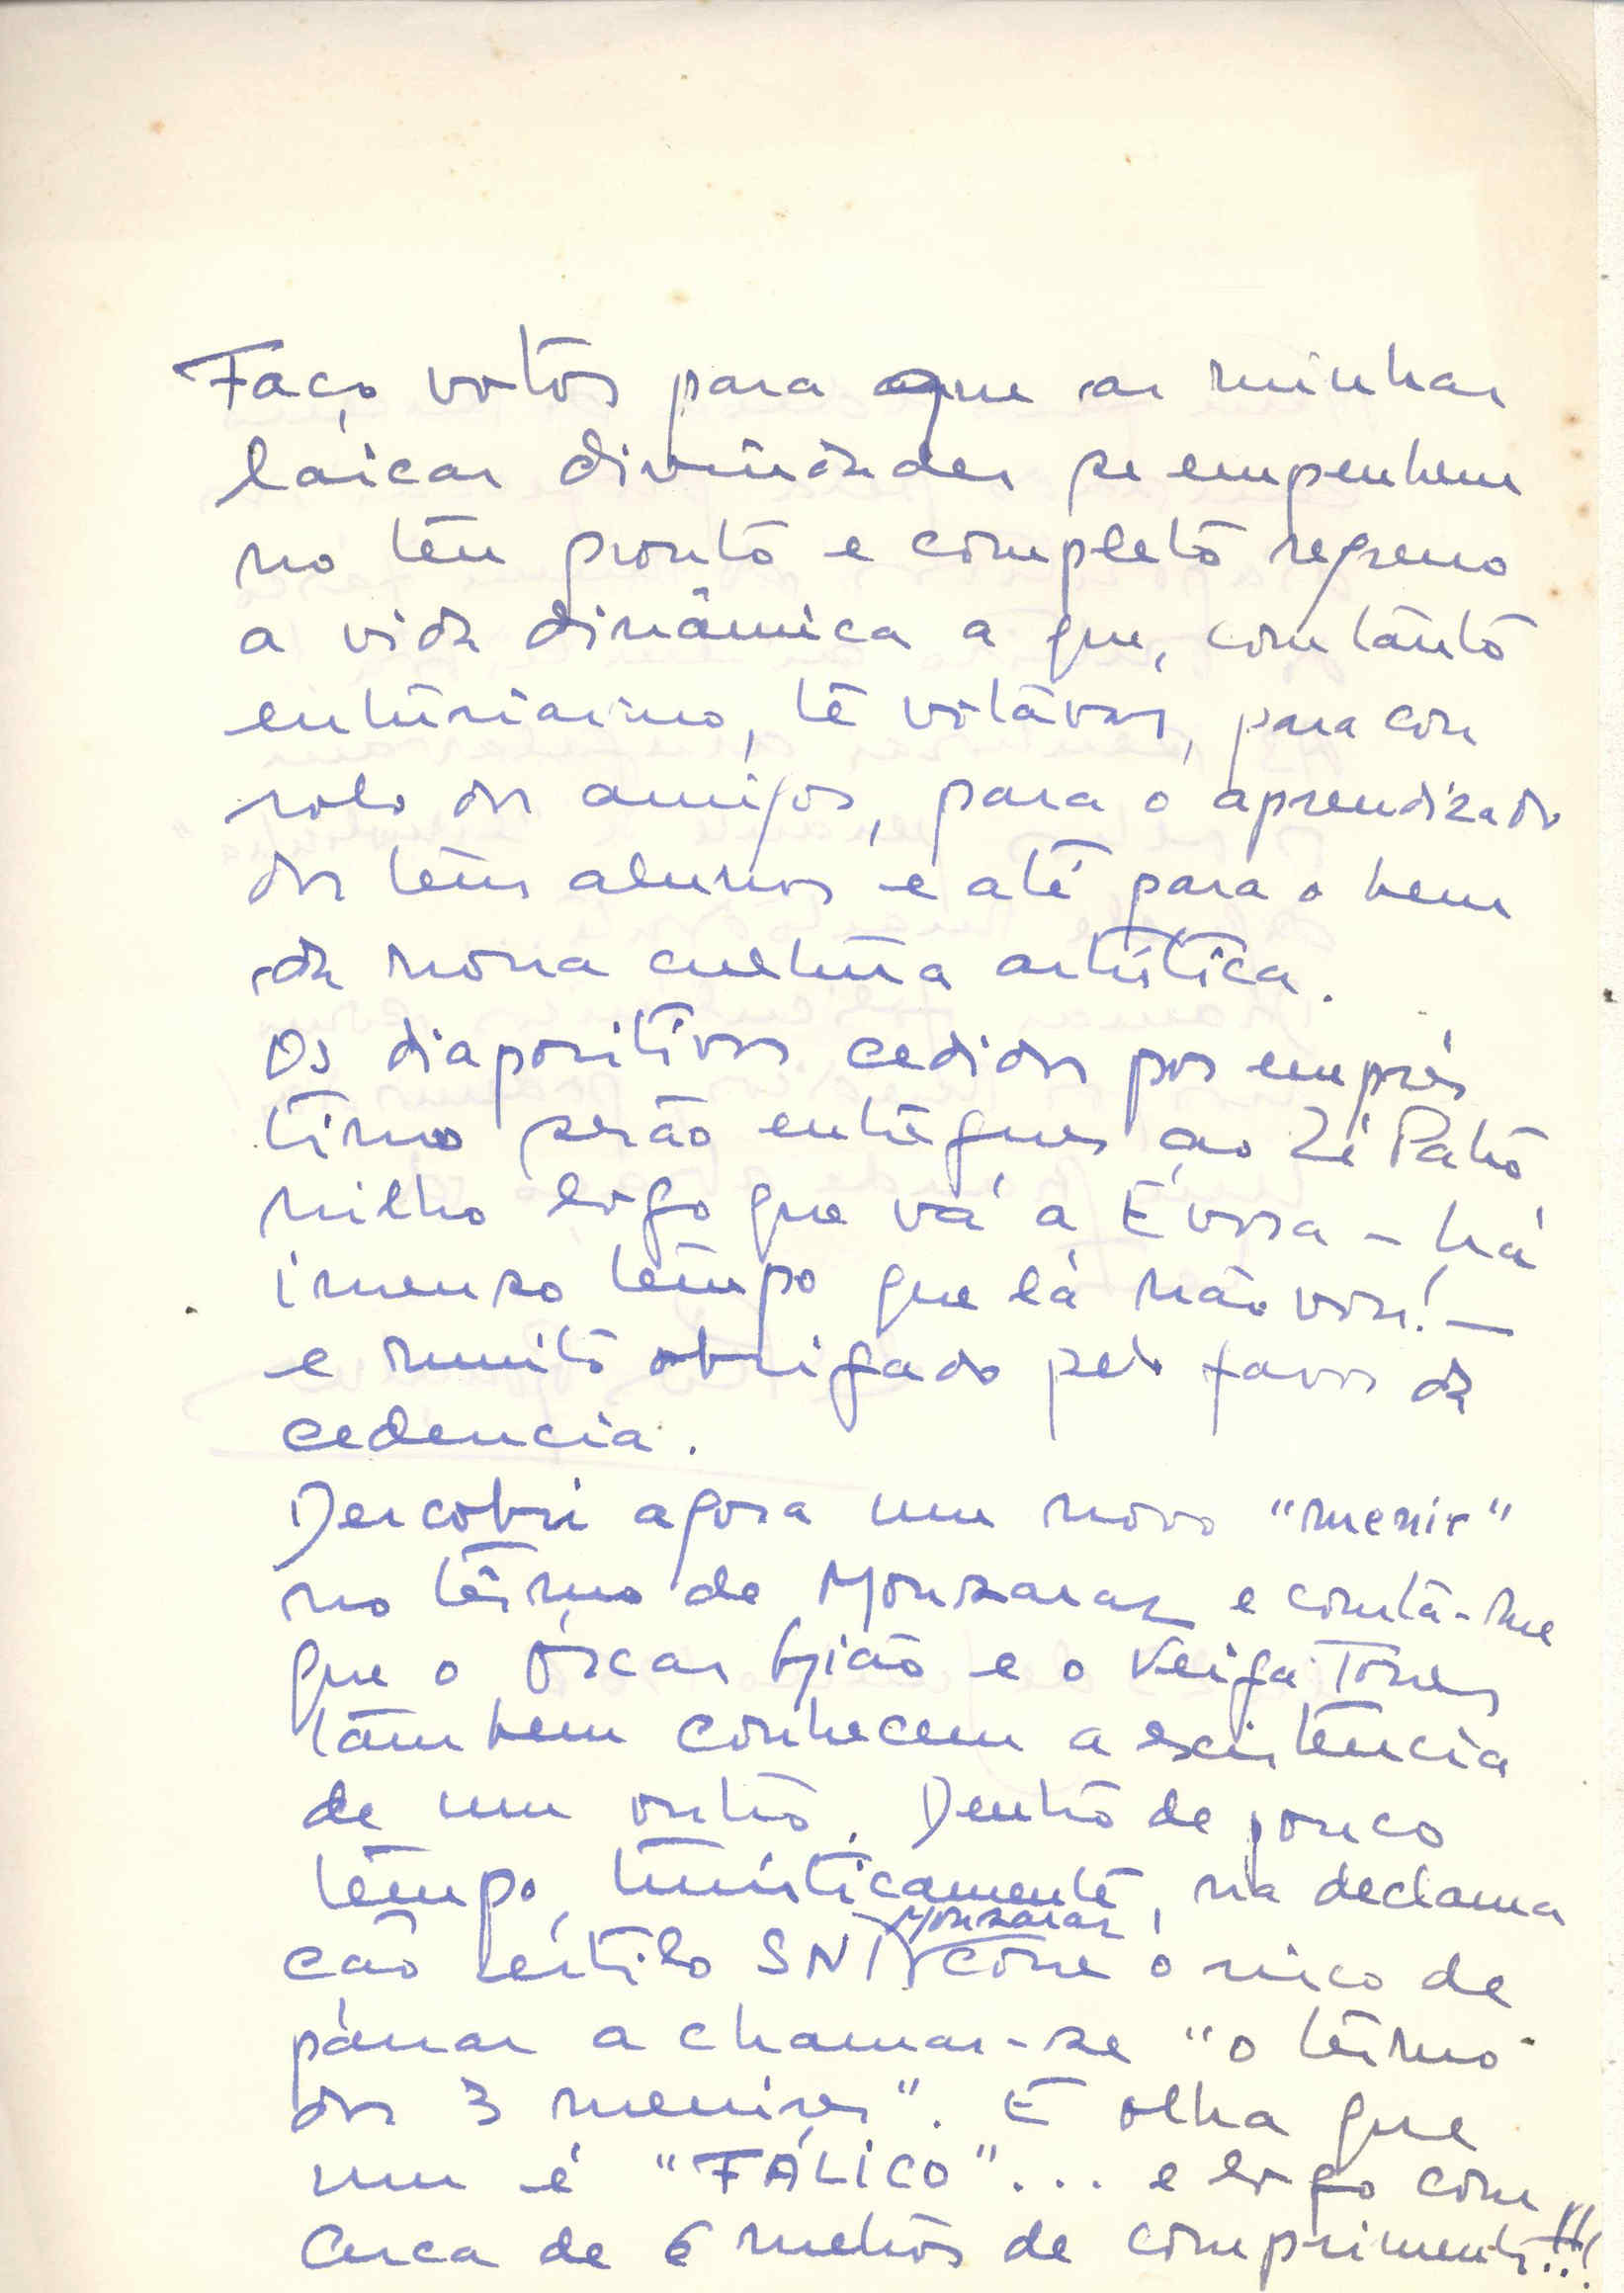 Faço votos para que as minhas
laicas divindades se empenhem
no teu pronto e completo regresso
a vida dinâmica a que, com tanto
entusiasmo, te votavas, para con
solo dos amigos, para o aprendizado
dos teus alunos e até para o bem
da nossa cultura artística.
Os diapositivos cedidos por emprés
timo serão entregues ao Zé Patro
nilho logo que vá a Évora - há
imenso tempo que lá não vou! -
e muito obrigado pelo favor da
cedencia.
Descobri agora um novo "menir"
no têrmo de Monsaraz e consta-me
que o Óscar Gião e o Veiga Torres
tambem conhecem a existência
de um outro. Dentro de pouco
tempo, turísticamente, na declama
ção estilo SNI, Monsaraz corre o risco de
passar a chamar-se "o têrmo
dos 3 menires". E olha que
um é "FÁLICO"... e logo com
cerca de 6 metros de comprimento!!!